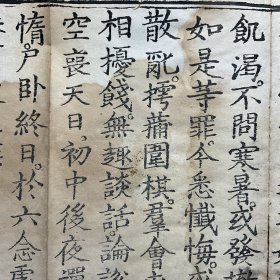 飢渴。不問寒暑。或發
如是等罪。今悉懺悔。
散亂。摴蒱圍棋。羣會
相擾餞。無趣談話。論說
空喪天日。初中後夜
惰。戶臥終日。於六念